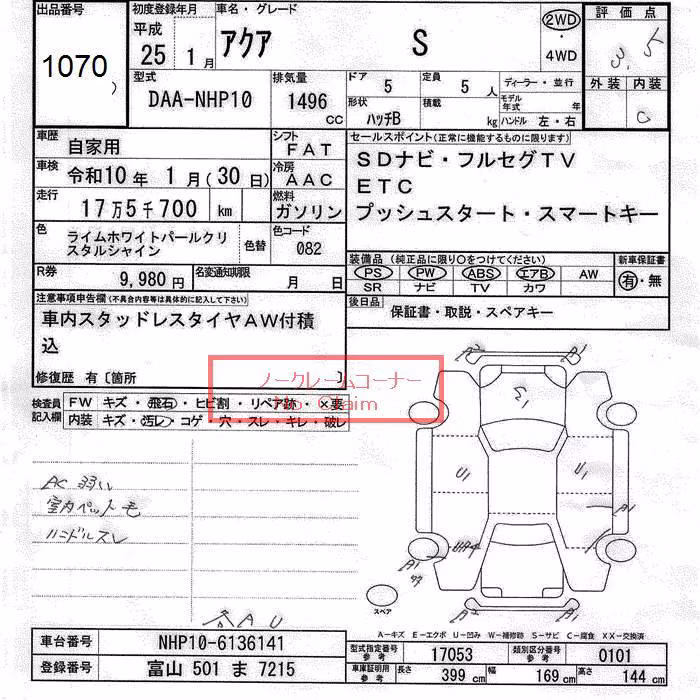 出品番号
1070
初度登録年月
平成
25 1月
車名・グレード
アクア S
2WD
・
4WD
評価点
3.5
外装 内装
型式
DAA-NHP10
排気量
1496
CC
ドア
5
定員
5 人
形状
ハッチB
積載
kg
ディーラー・並行
モデル年式 年
ハンドル 左・右
車歴
自家用
シフト
FAT
車検
令和10年 1月(30日)
冷房
AAC
走行
17万5千700 km
燃料
ガソリン
色
ライムホワイトパールクリ
スタルシャイン
色替
色コード
082
R券
9,980円
名変通知期限
月 日
セールスポイント(正常に機能するものに限ります)
SDナビ・フルセグTV
ETC
プッシュスタート・スマートキー
装備品(純正品に限り○をつけてください)
PS PW ABS エアB AW
SR ナビ TV カワ
新車保証書
有・無
後日品
保証書・取説・スペアキー
注意事項申告欄(不具合内容等は具体的に記入して下さい)
車内スタッドレスタイヤAW付積
込
修復歴 有〔箇所 〕
ノークレームコーナー
No Claim
検査員
記入欄
FW キズ・飛石・ヒビ割・リペア跡・×要
内装 キズ・汚レ・コゲ・穴・スレ・キレ・破レ
AC 弱い
室内ペット毛
ハンドルスレ
各AU
A2 A1
E1
U1 U1
A1
A1
A2 A1
スペア
A−キズ E−エクボ U−凹み W−補修跡 S−サビ C−腐食 XX−交換済
車台番号
NHP10-6136141
登録番号
富山 501 ま 7215
型式指定番号
参考
17053
類別区分番号
参考
0101
車庫証明用
参考
長さ 399 cm 幅 169 cm 高さ 144 cm